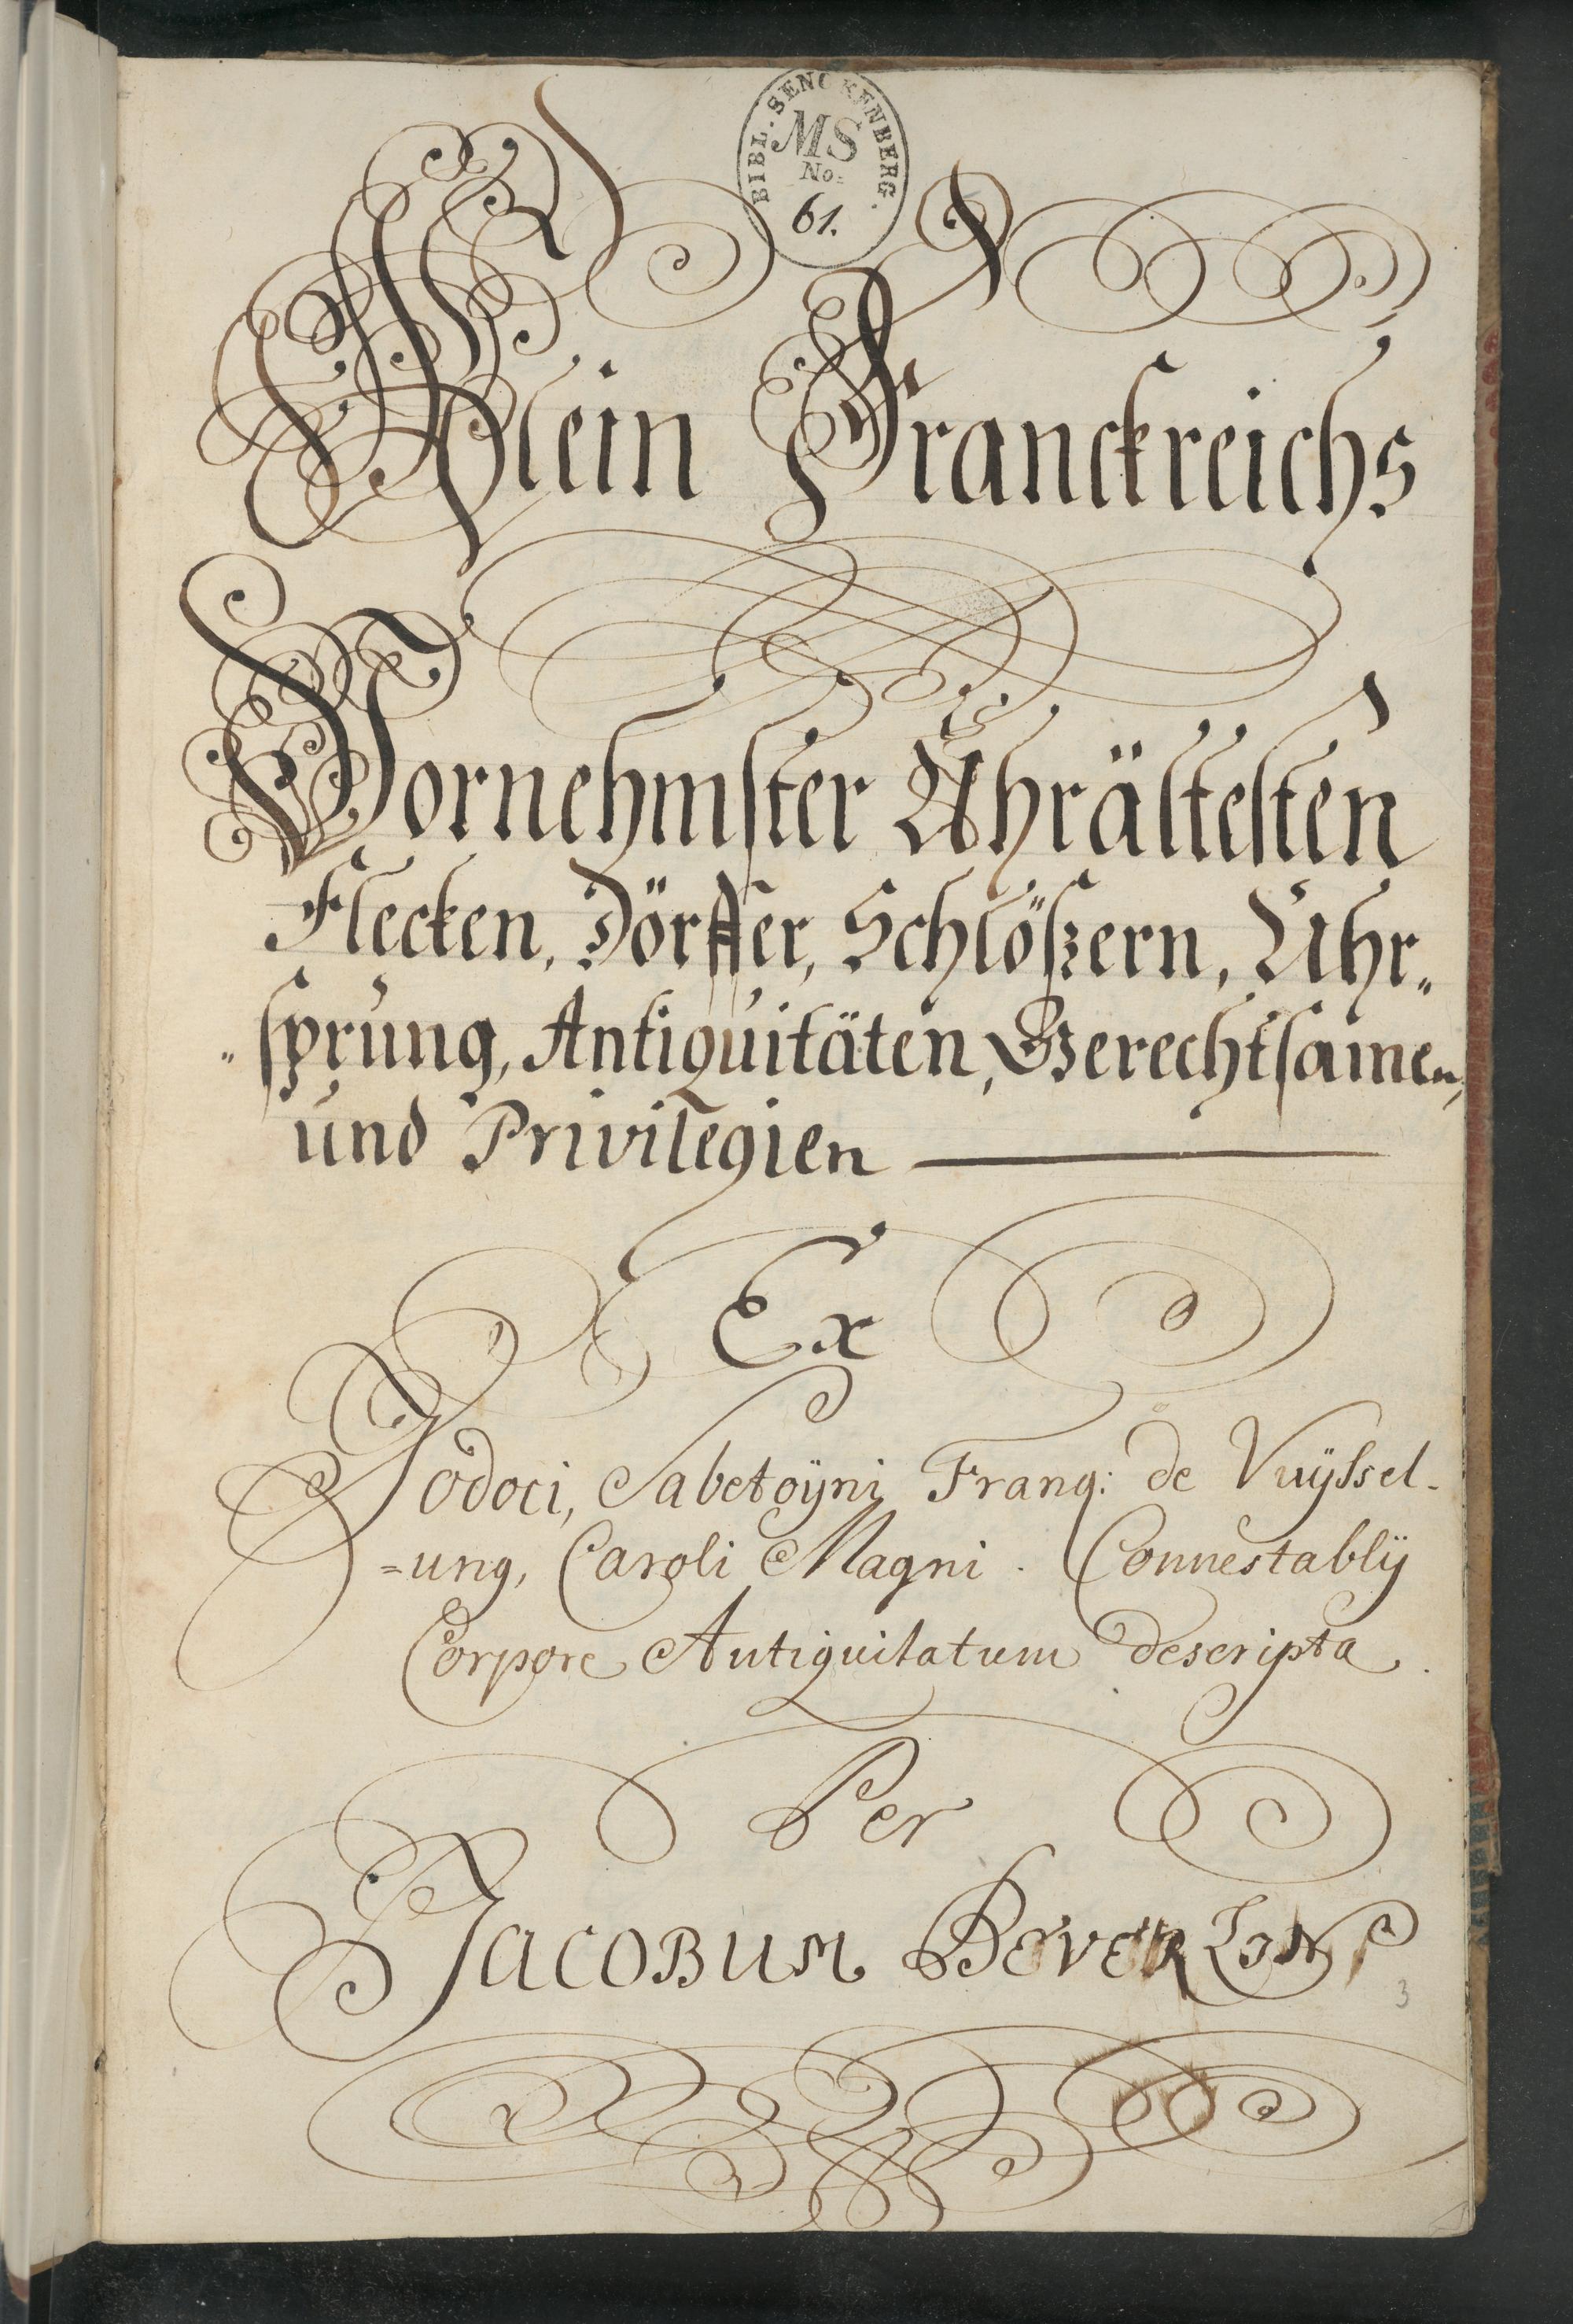 BIBL. SENCKENBERG.
MS
No:
61.
Klein Franckreichs
Vornehmster Uhrältesten
Flecken, Dörffer, Schlößern, Uhr„
„sprung, Antiquitäten, Gerechtsamen,
und Privilegien
Ex
Jodoci, Sabetoÿni Franq: de Vuÿssel-
=ung, Caroli Magni. Connestablÿ
Corpore Antiquitatum descripta.
Per
JACOBUM
3